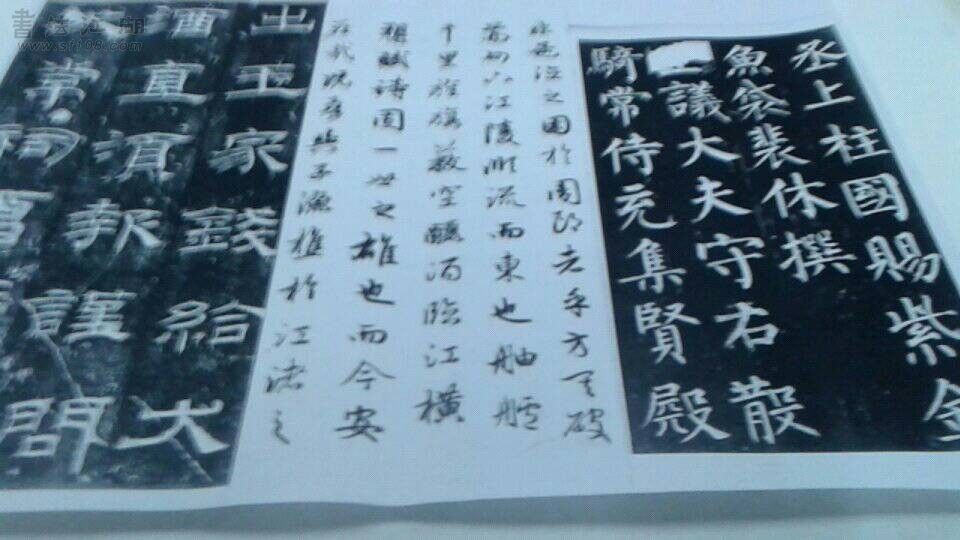 書法江湖
www.sf108.com
丞上柱國賜紫金
魚袋裴休撰
議大夫守右散
騎常侍充集賢殿
非孟德之困於周郎者乎方其破
荊州下江陵順流而東也舳艫
千里旌旗蔽空釃酒臨江橫
槊賦詩固一世之雄也而今安
在哉況吾與子漁樵於江渚之
出王家錢給大
酒直須報謹問
常祠曹